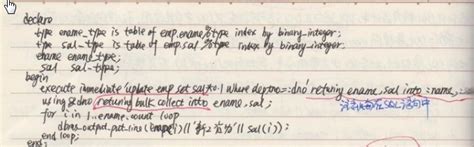 declare
type ename_type is table of emp.ename%type index by binary_integer;
type sal_type is table of emp.sal%type index by binary_integer;
ename ename_type;
sal sal_type;
begin
execute immediate 'update emp set sal=sal*0.1 where deptno=:dno' returning ename,sal into :name,
using &dno returning bulk collect into ename,sal;
for i in 1..ename.count loop
dbms_output.put_line(ename(i)||'新工资为'||sal(i));
end loop;
end;